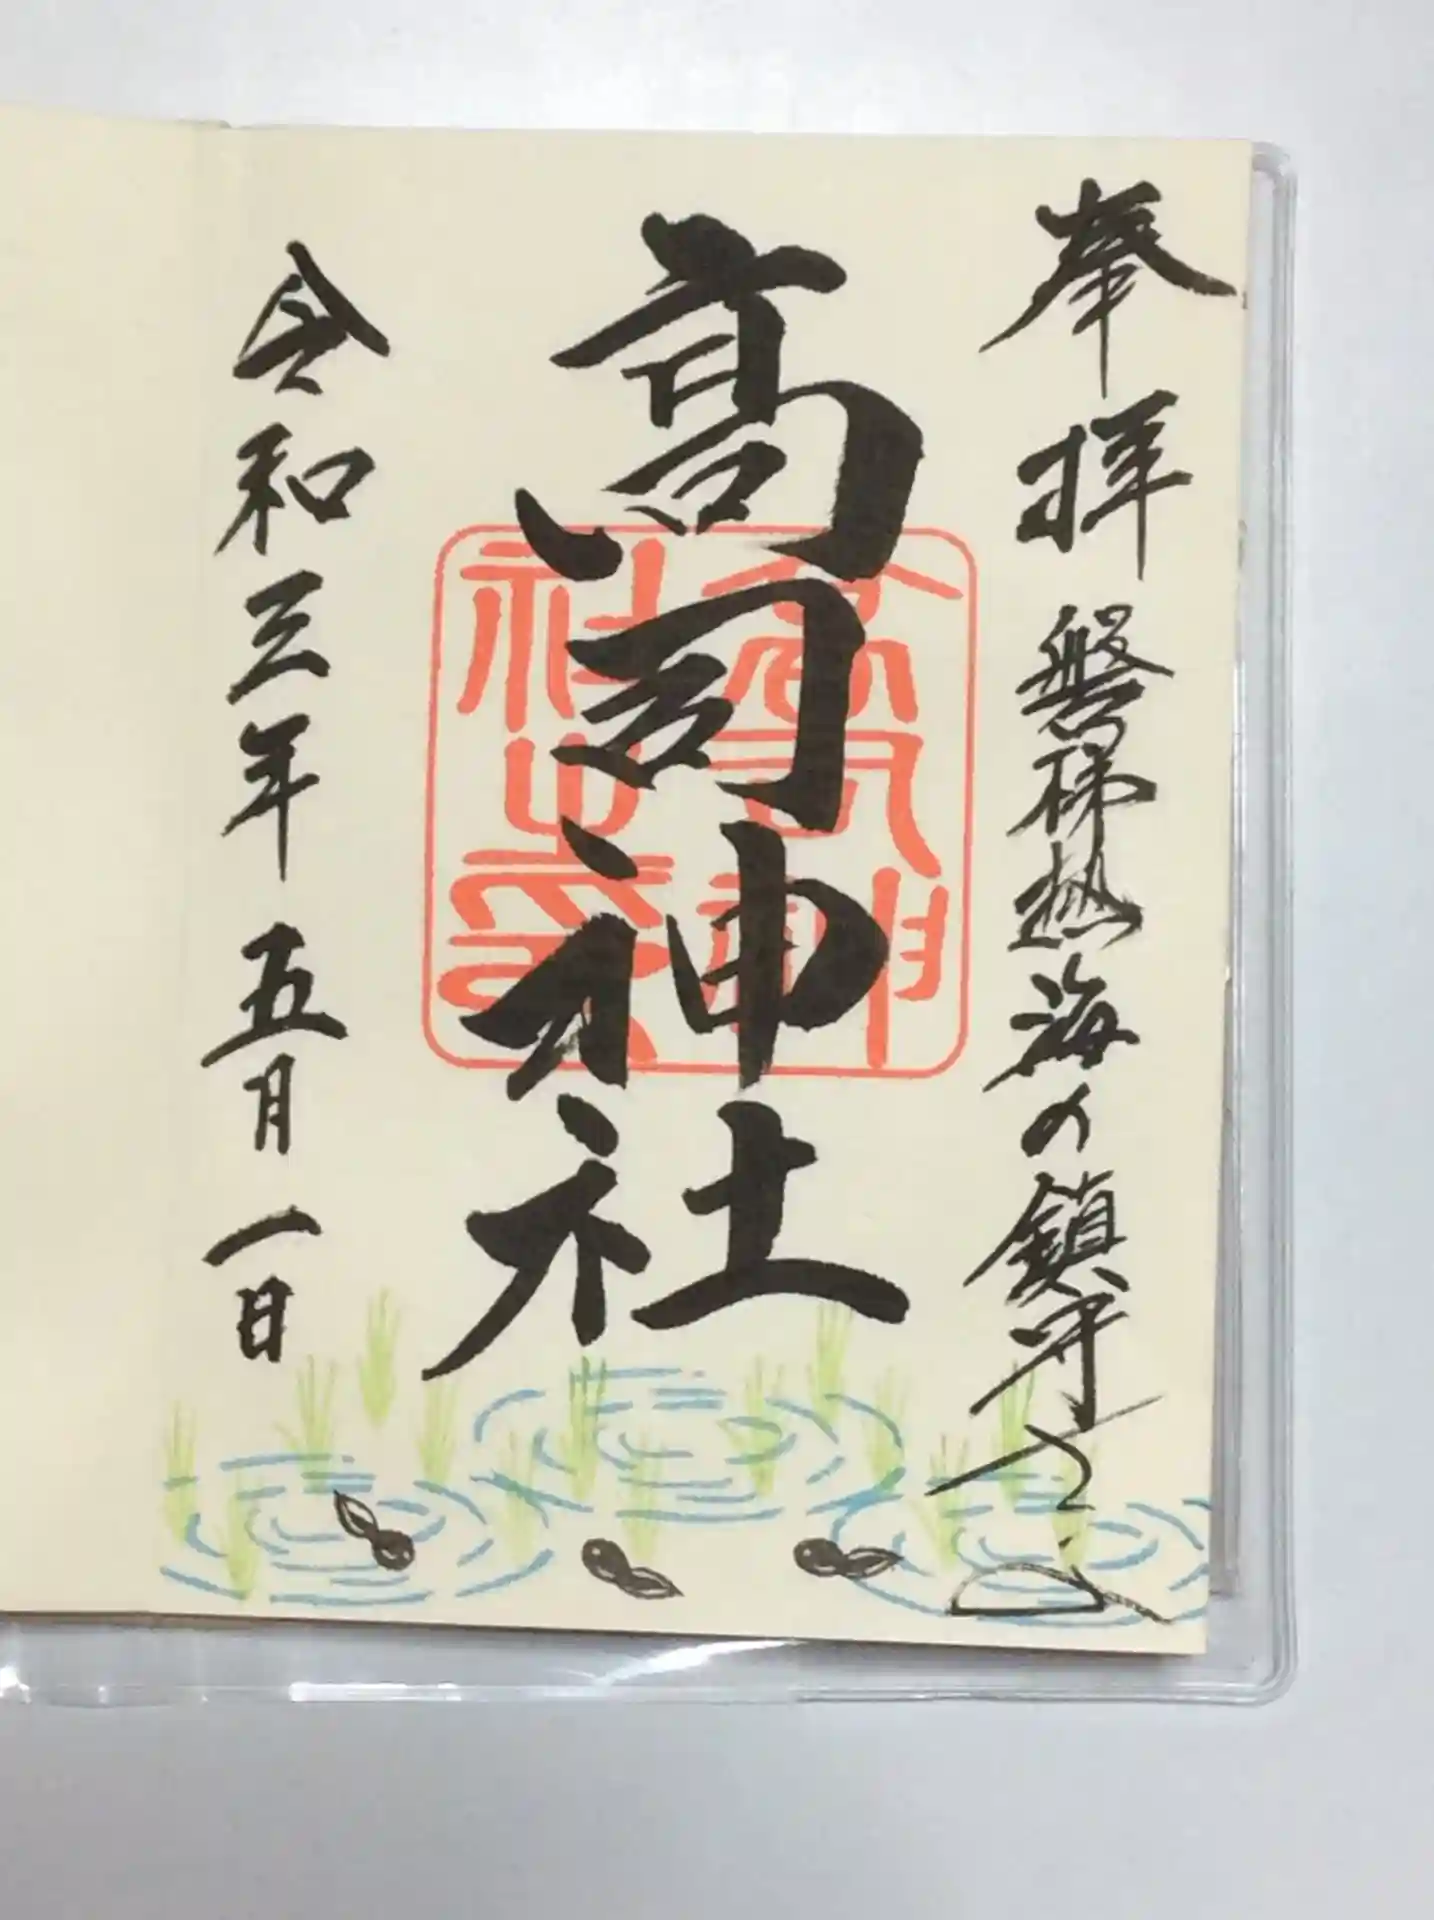 奉拝
磐梯熱海の鎮守
高司神社
高司神社之印
令和三年 五月一日